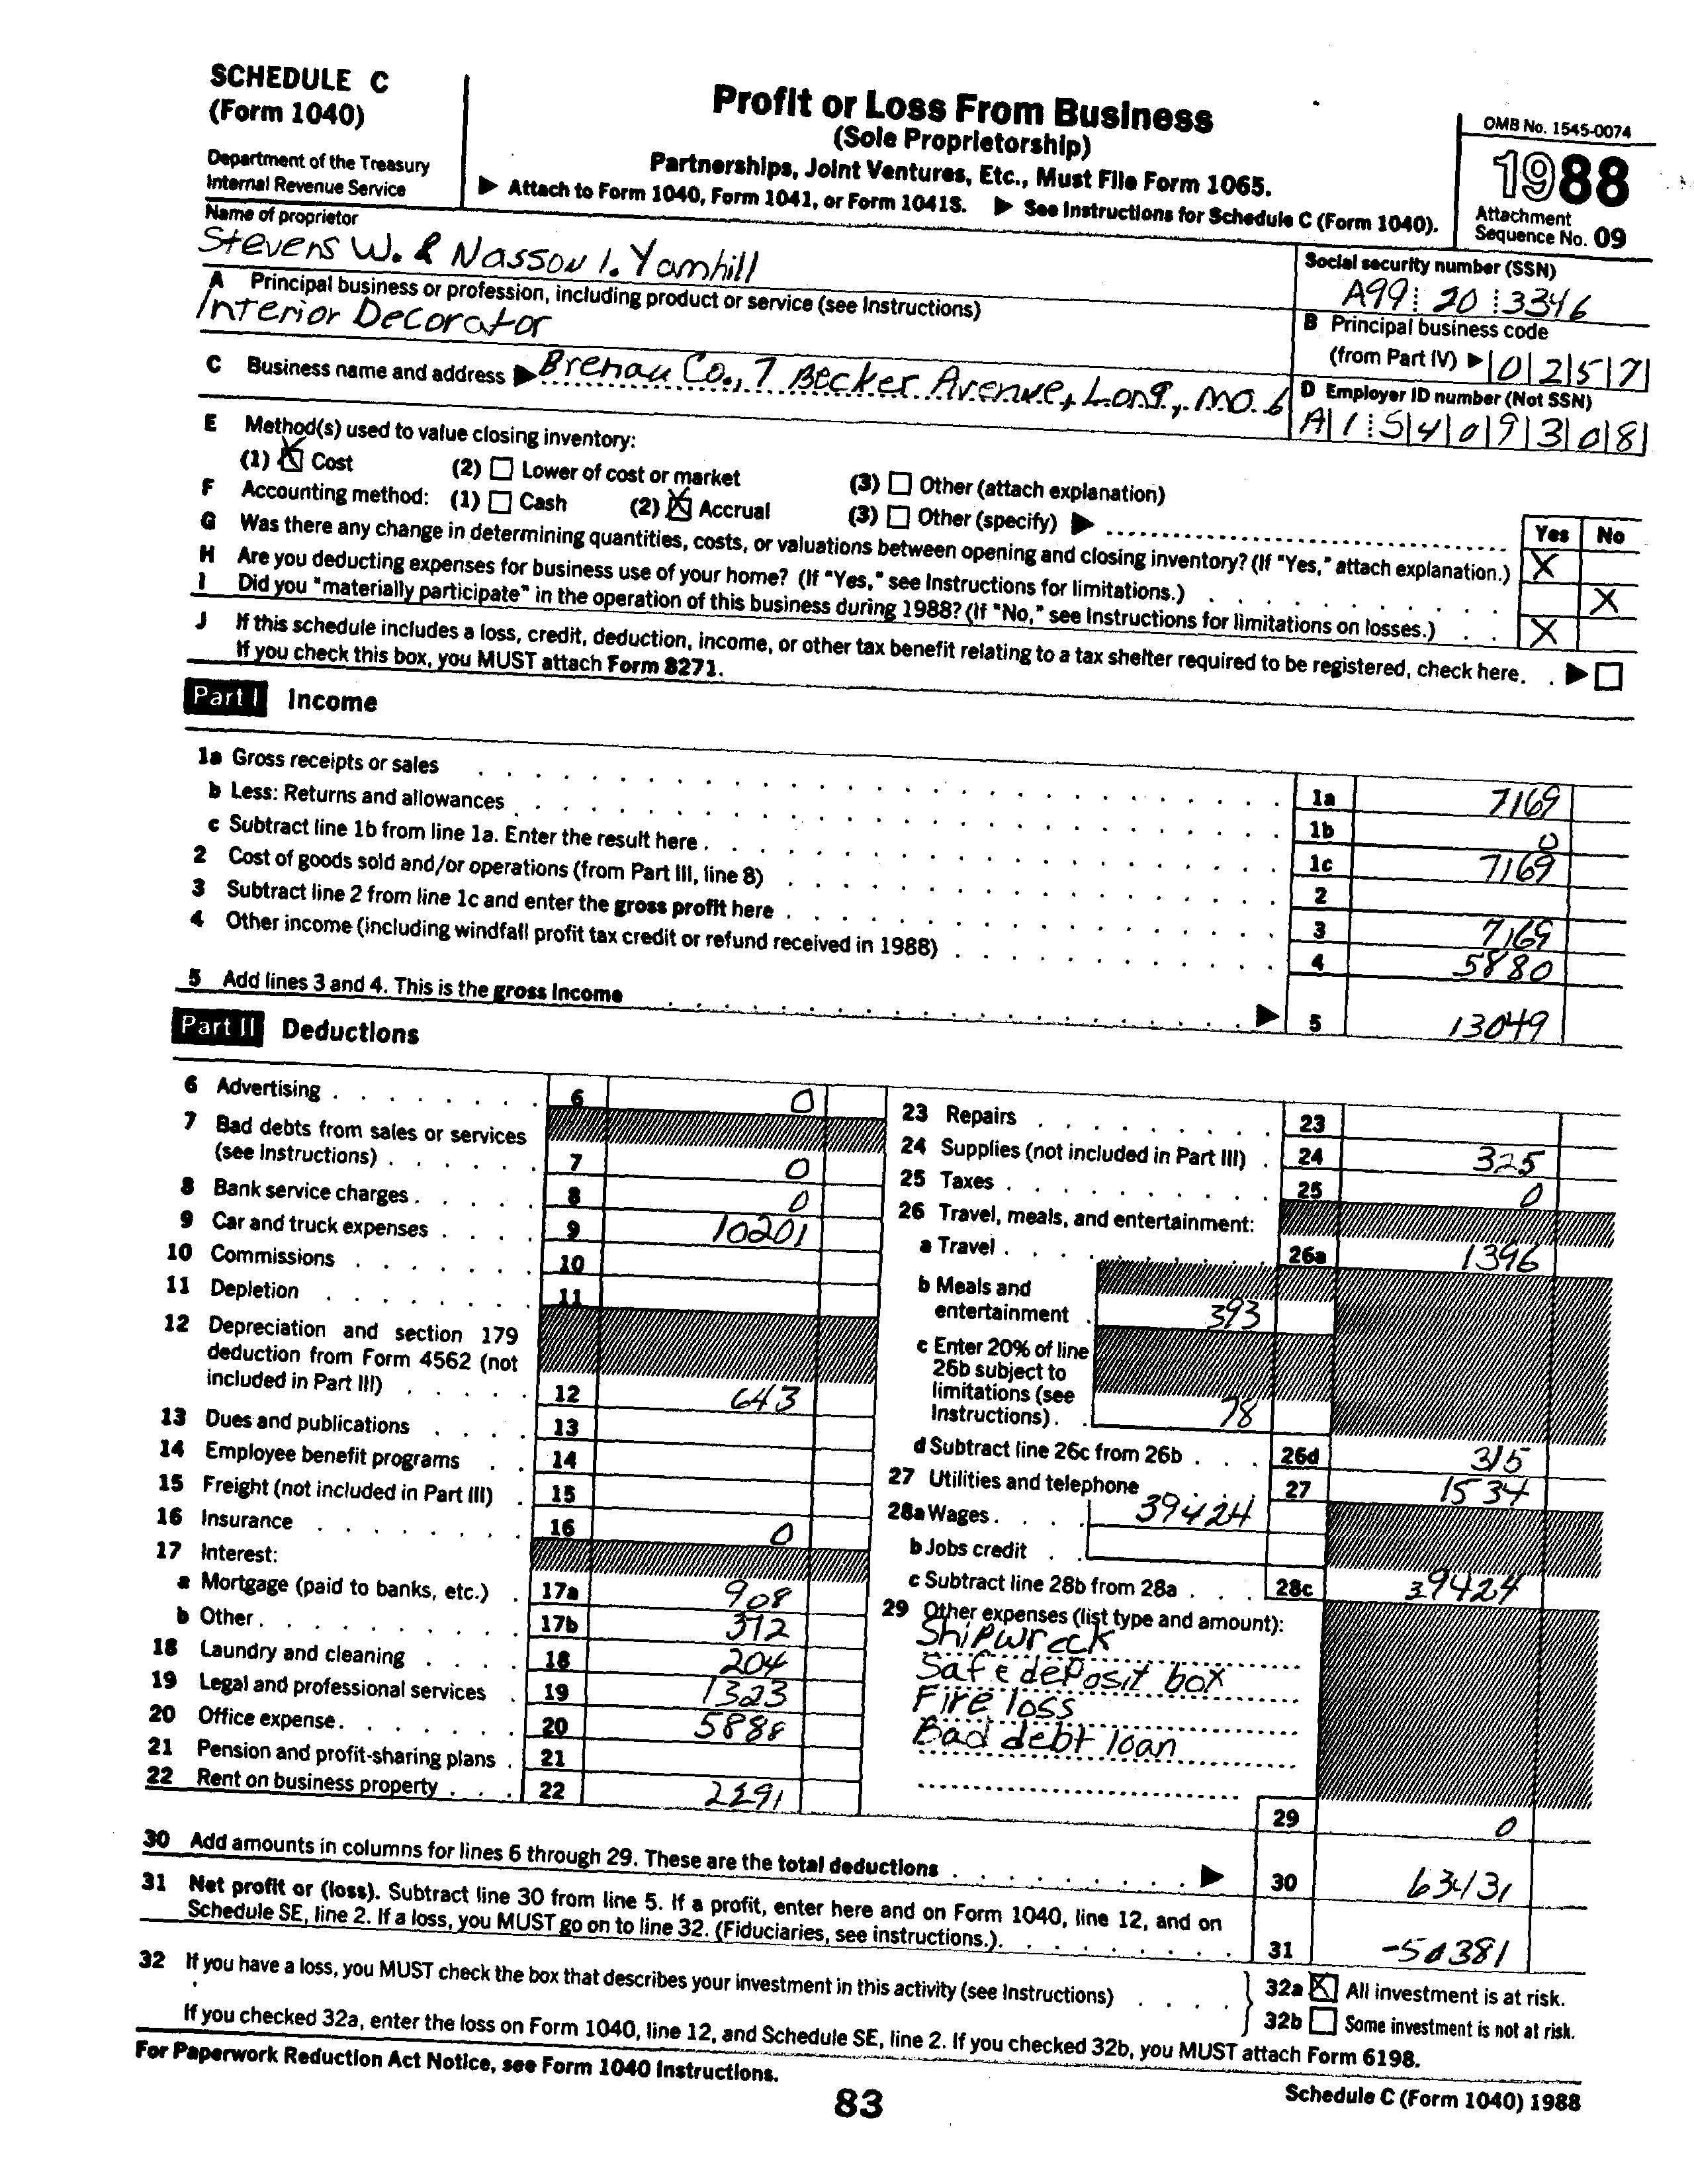 SCHEDULE C
(Form 1040)
Department of the Treasury
Internal Revenue Service
Profit or Loss From Business
(Sole Proprietorship)
Partnerships, Joint Ventures, Etc., Must File Form 1065.
▶ Attach to Form 1040, Form 1041, or Form 1041S. ▶ See Instructions for Schedule C (Form 1040).
OMB No. 1545-0074
1988
Attachment
Sequence No. 09
Name of proprietor
Stevens W. & Nasson I. Yamhill
Social security number (SSN)
A99 20 3346
A Principal business or profession, including product or service (see Instructions)
Interior Decorator
B Principal business code
(from Part IV) ▶ 0 2 5 7
C Business name and address ▶ Brenau Co., 7 Becker Avenue, Long, MO. 6
D Employer ID number (Not SSN)
A 1 5 4 0 9 3 0 8
E Method(s) used to value closing inventory:
(1) ☒ Cost (2) ☐ Lower of cost or market (3) ☐ Other (attach explanation)
F Accounting method: (1) ☐ Cash (2) ☒ Accrual (3) ☐ Other (specify) ▶
Yes No
G Was there any change in determining quantities, costs, or valuations between opening and closing inventory? (If "Yes," attach explanation.) X
H Are you deducting expenses for business use of your home? (If "Yes," see Instructions for limitations.) X
I Did you "materially participate" in the operation of this business during 1988? (If "No," see Instructions for limitations on losses.) X
J If this schedule includes a loss, credit, deduction, income, or other tax benefit relating to a tax shelter required to be registered, check here. ▶ ☐
If you check this box, you MUST attach Form 8271.
Part I Income
1a Gross receipts or sales 1a 7169
b Less: Returns and allowances 1b 0
c Subtract line 1b from line 1a. Enter the result here 1c 7169
2 Cost of goods sold and/or operations (from Part III, line 8) 2
3 Subtract line 2 from line 1c and enter the gross profit here 3 7169
4 Other income (including windfall profit tax credit or refund received in 1988) 4 5880
5 Add lines 3 and 4. This is the gross income ▶ 5 13049
Part II Deductions
6 Advertising 6 0
7 Bad debts from sales or services
(see Instructions) 7 0
8 Bank service charges 8 0
9 Car and truck expenses 9 10201
10 Commissions 10
11 Depletion 11
12 Depreciation and section 179
deduction from Form 4562 (not
included in Part III) 12 643
13 Dues and publications 13
14 Employee benefit programs 14
15 Freight (not included in Part III) 15
16 Insurance 16 0
17 Interest:
a Mortgage (paid to banks, etc.) 17a 908
b Other 17b 312
18 Laundry and cleaning 18 204
19 Legal and professional services 19 1323
20 Office expense 20 5888
21 Pension and profit-sharing plans 21
22 Rent on business property 22
23 Repairs 23
24 Supplies (not included in Part III) 24 325
25 Taxes 25 0
26 Travel, meals, and entertainment:
a Travel 26a 1396
b Meals and
entertainment 393
c Enter 20% of line
26b subject to
limitations (see
Instructions) 78
d Subtract line 26c from 26b 26d 315
27 Utilities and telephone 27 1534
28a Wages 39424
b Jobs credit
c Subtract line 28b from 28a 28c 39424
29 Other expenses (list type and amount):
Shipwreck
Safe deposit box
Fire loss
Bad debt loan
29 0
30 Add amounts in columns for lines 6 through 29. These are the total deductions ▶ 30
31 Net profit or (loss). Subtract line 30 from line 5. If a profit, enter here and on Form 1040, line 12, and on
Schedule SE, line 2. If a loss, you MUST go on to line 32. (Fiduciaries, see instructions.) 31
32 If you have a loss, you MUST check the box that describes your investment in this activity (see Instructions)
32a ☒ All investment is at risk.
32b ☐ Some investment is not at risk.
If you checked 32a, enter the loss on Form 1040, line 12, and Schedule SE, line 2. If you checked 32b, you MUST attach Form 6198.
For Paperwork Reduction Act Notice, see Form 1040 Instructions.
Schedule C (Form 1040) 1988
83